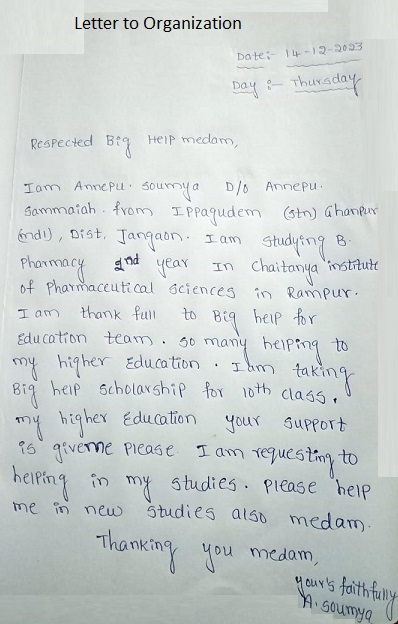 Letter to Organization
Date:- 14-12-2023
Day :- Thursday
Respected Big Help medam,
I am Annepu. Soumya D/o Annepu.
Sammaiah. from Ippagudem (stn) Ghanpur
(mdl), Dist, Jangaon. I am studying B.
Pharmacy 2nd year In Chaitanya institute
of Pharmaceutical Sciences in Rampur.
I am thank full to Big help for
Education team. so many helping to
my higher Education. I am taking
Big help Scholarship for 10th class,
my higher Education your support
is giveme please. I am requesting to
helping in my studies. please help
me in new studies also medam.
Thanking you medam,
your's faithfully
A. soumya